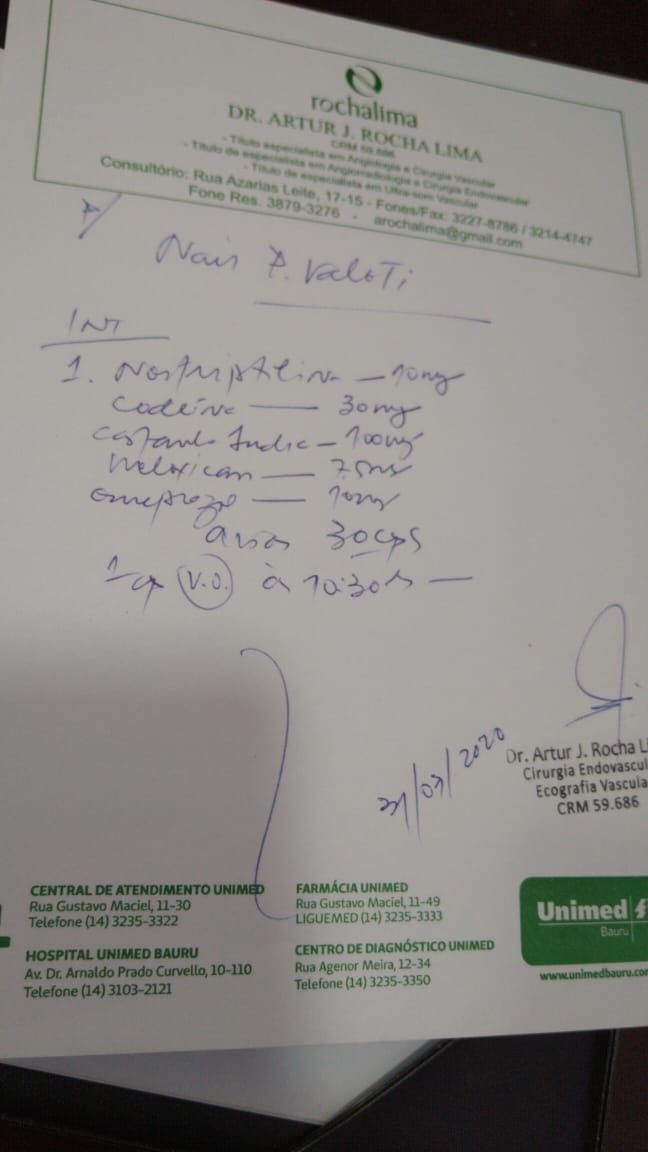 rochalima
DR. ARTUR J. ROCHA LIMA
CRM 59.686
- Título especialista em Angiologia e Cirurgia Vascular
- Título de especialista em Angiorradiologia e Cirurgia Endovascular
- Título de especialista em Ultra-som Vascular
Consultório: Rua Azarias Leite, 17-15 - Fones/Fax: 3227-8786 / 3214-4747
Fone Res. 3879-3276 - arochalima@gmail.com
P/
Nair P. Valoti
INT
1. Nortriptilina — 10mg
Codeína — 30mg
Castanh Índia — 100mg
Meloxican — 7.5mg
Omeprazo — 10mg
30 cps
1 cp V.O. à 10:30h —
31/03/2020
Dr. Artur J. Rocha L
Cirurgia Endovascul
Ecografia Vascula
CRM 59.686
CENTRAL DE ATENDIMENTO UNIMED
Rua Gustavo Maciel, 11-30
Telefone (14) 3235-3322
FARMÁCIA UNIMED
Rua Gustavo Maciel, 11-49
LIGUEMED (14) 3235-3333
HOSPITAL UNIMED BAURU
Av. Dr. Arnaldo Prado Curvello, 10-110
Telefone (14) 3103-2121
CENTRO DE DIAGNÓSTICO UNIMED
Rua Agenor Meira, 12-34
Telefone (14) 3235-3350
Unimed
Bauru
www.unimedbauru.co